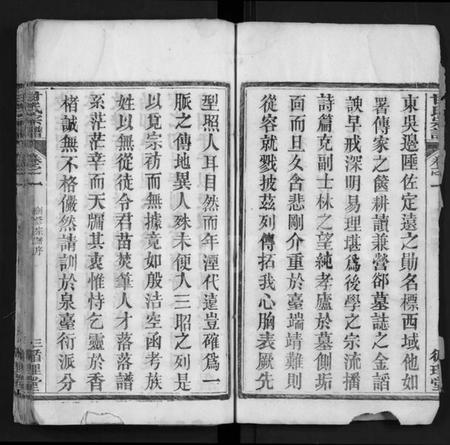 東吳邊陲佐定遠之勛名標西域他如
署傳家之篋耕讀兼營卻墓誌之金諂
諛早戒深明易理堪爲後學之宗流播
詩篇克副士林之望純孝廬於墓側垢
面而且久含悲剛介重於臺端靖難則
從容就戮披茲列傳拓我心胸袁厥先
型照人耳目然而年湮代遠豈確爲一
脈之傳地異人殊未便入三昭之列是
以覓宗祊而無據竟如殷浩空函考族
姓以無從徒令君苗焚筆人才落落譜
系茫茫幸而天牖其衷惟恃乞靈於香
楮誠無不格儼然請訓於泉臺衍派分
宗譜
卷之一
三
循理堂
循理堂